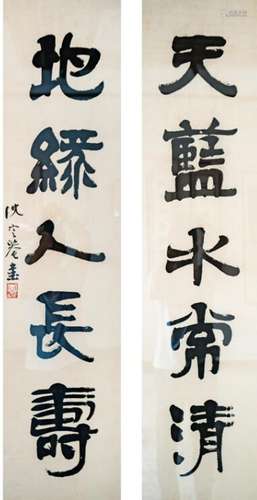 天藍水常清
地緣人長壽
沈定庵書